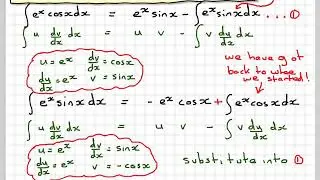 ∫eˣcosxdx = eˣsinx − ∫eˣsinxdx ... ①
∫u dv/dx dx = u v − ∫v du/dx dx
u = eˣ dv/dx = cosx
du/dx = eˣ v = sinx
we have got
back to where
we started!
∫eˣsinxdx = −eˣcosx + ∫eˣcosxdx
∫u dv/dx dx = u v − ∫v du/dx dx
u = eˣ dv/dx = sinx
du/dx = eˣ v = −cosx
substitute into ①